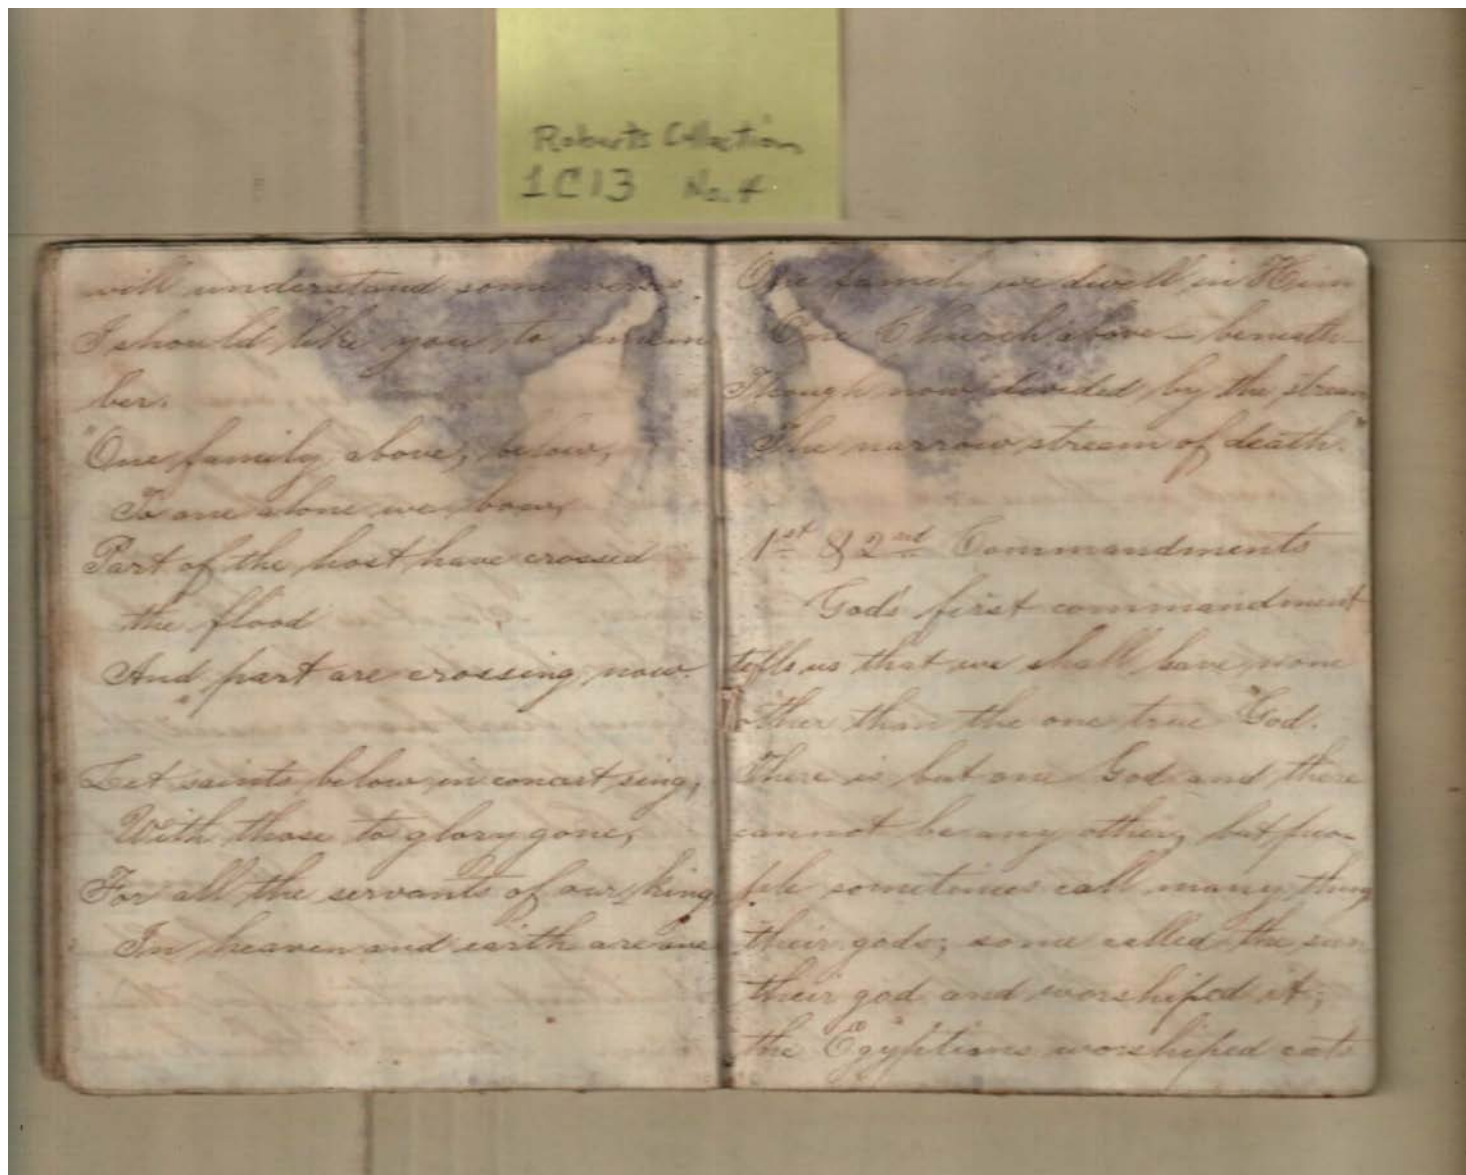 Roberts Collection
1C13 No. 4
will understand some verses
I should like you to remem
ber.
"One family above, below,
To one alone we bow,
Part of the host have crossed
the flood
And part are crossing now.
Let saints below in concert sing,
With those to glory gone,
For all the servants of our king
In heaven and earth are one
One family we dwell in Him
One Church above — beneath
Though now divided by the stream
The narrow stream of death."
1st & 2nd Commandments
God's first commandment
tells us that we shall have none
other than the one true God.
There is but one God and there
cannot be any other, but peo-
ple sometimes call many things
their gods; some called the sun
their god and worshiped it;
the Egyptians worshiped cats